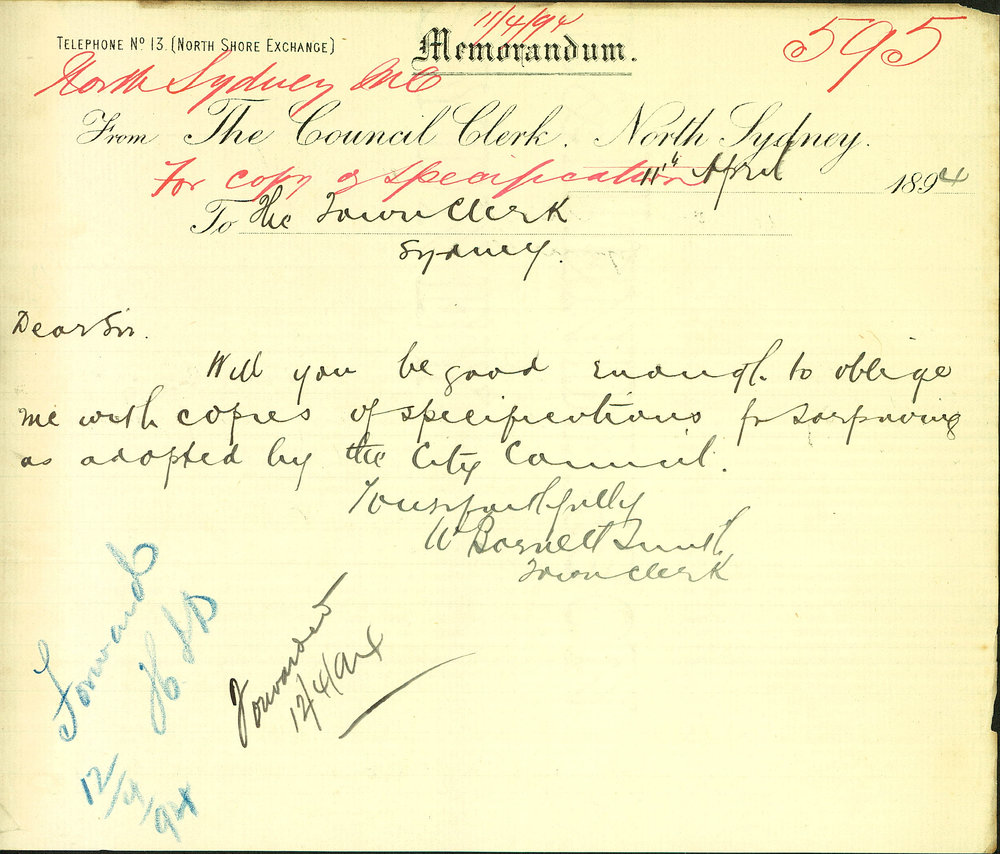 11/4/94
TELEPHONE No 13. (NORTH SHORE EXCHANGE)
Memorandum.
595
North Sydney M C
From The Council Clerk. North Sydney.
For copy of specification
11th April 1894
To The Town Clerk
Sydney.
Dear Sir.
Will you be good enough to oblige
me with copies of specifications for tarpaving
as adopted by the City Council.
Yours faithfully
W Barnett Smith
Town Clerk
Forward
12/4/94
Forwarded
12/4/94